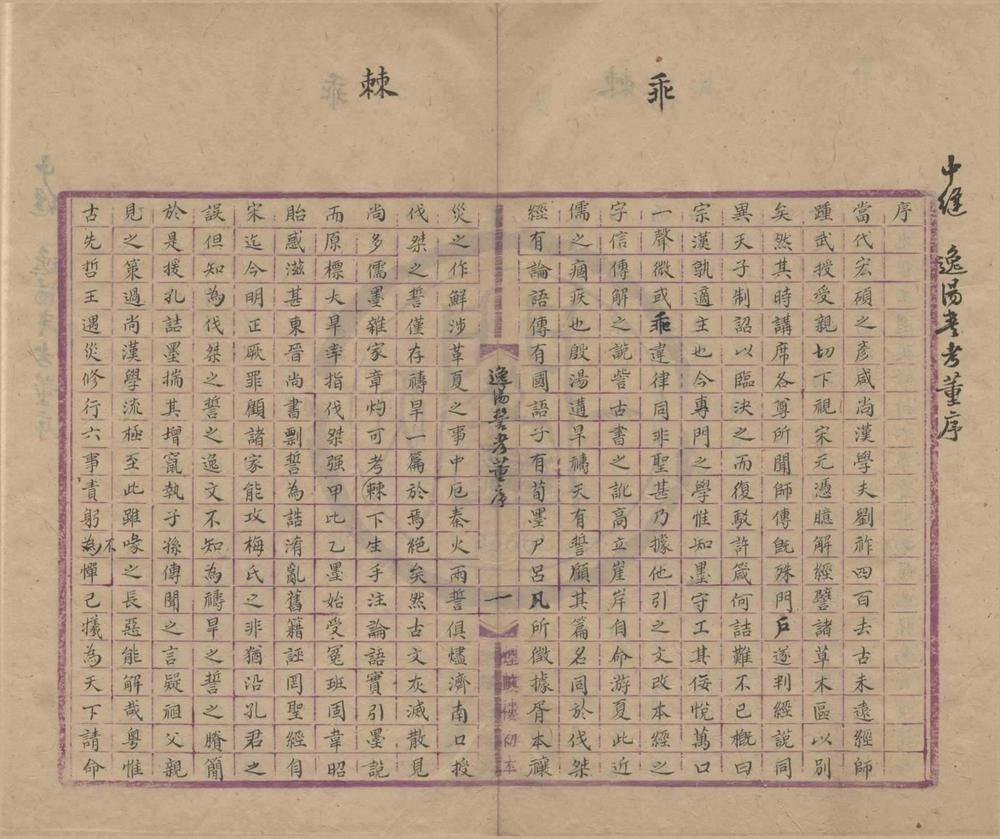 中縫 逸湯誓考董序
乖
序
當代宏碩之彥咸尚漢學夫劉祚四百去古未遠經師
踵武授受親切下視宋元憑臆解經譬諸草木區以別
矣然其時講席各尊所聞師傳旣殊門戶遂判經說同
異天子制詔以臨決之而復駁許箴何詰難不已概曰
宗漢孰適主也今專門之學惟知墨守工其侫悅萬口
一聲微或乖違律同非聖甚乃據他引之文改本經之
字信傳解之說訾古書之訛高立崖岸自命游夏此近
儒之痼疾也殷湯遘旱禱天有誓顧其篇名同於伐桀
經有論語傳有國語子有荀墨尸呂凡所徵據胥本禳
逸湯誓考董序
一
煙嶼樓初本
棘
災之作鮮涉革夏之事中厄秦火兩誓俱燼濟南口授
伐桀之誓僅存禱旱一篇於焉絕矣然古文灰滅散見
尚多儒墨雜家章灼可考棘下生手注論語實引墨說
而原標大旱牽指伐桀强甲比乙墨始受冤班固韋昭
貽惑滋甚東晉尚書剽誓為誥淆亂舊籍誣罔聖經自
宋迄今明正厥罪顧諸家能攻梅氏之非猶沿孔君之
誤但知為伐桀之誓之逸文不知為禱旱之誓之賸簡
於是援孔詰墨揣其增竄執子孫傳聞之言疑祖父親
見之策過尚漢學流極至此雖喙之長惡能解哉粵惟
古先哲王遇災修行六事責躬不為憚己犧為天下請命